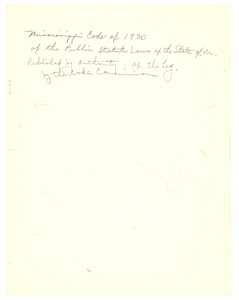 Mississippi Code of 1930
of the Public Statute Laws of the State of Mi.
Published by Authority of the Leg.
by the Code Commission